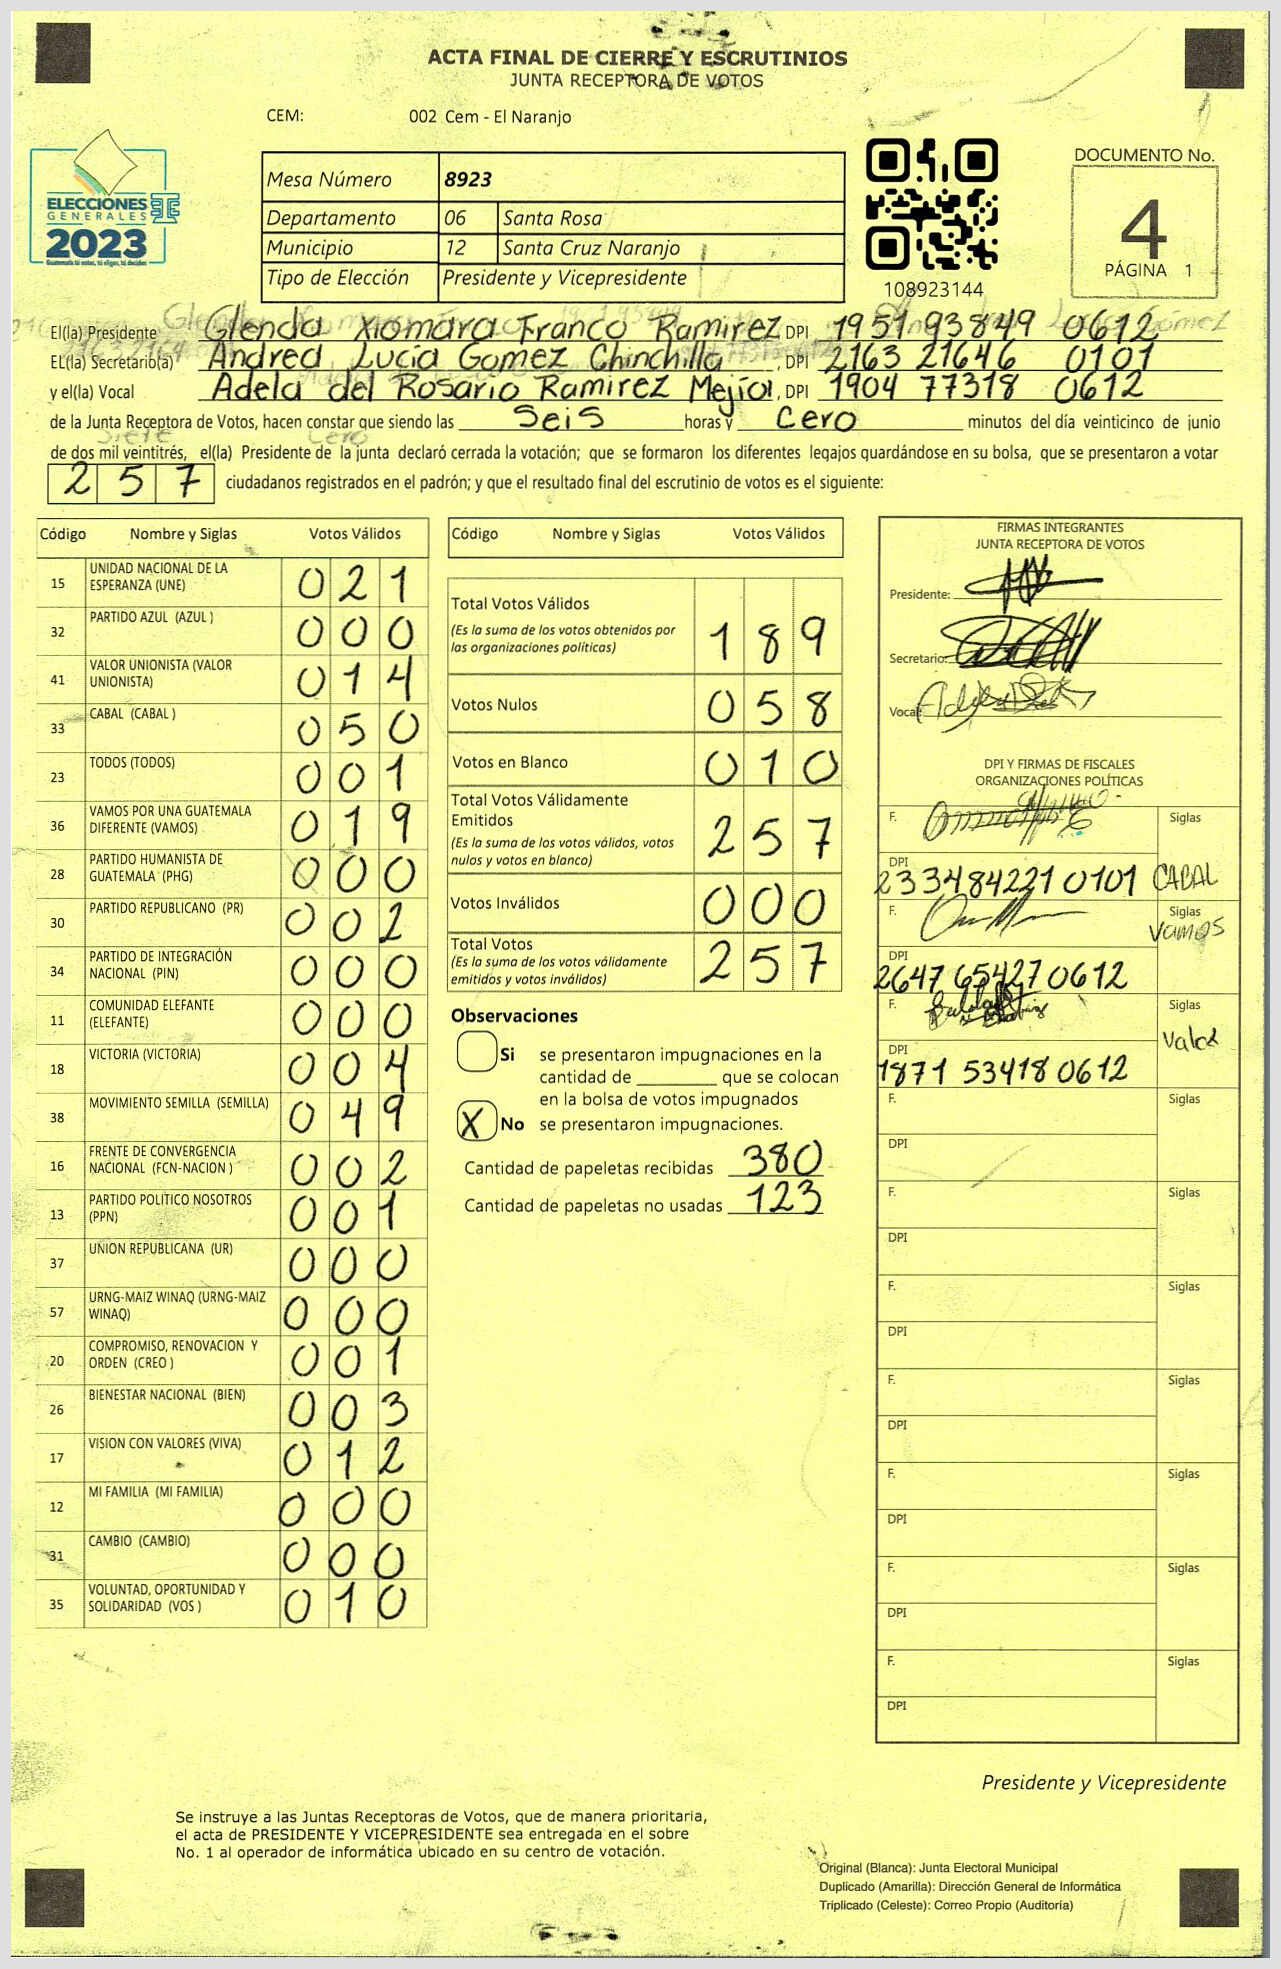 ACTA FINAL DE CIERRE Y ESCRUTINIOS
JUNTA RECEPTORA DE VOTOS
CEM: 002 Cem - El Naranjo
ELECCIONES
GENERALES
2023
Guatemala tú votas, tú eliges, tú decides
Mesa Número 8923
Departamento 06 Santa Rosa
Municipio 12 Santa Cruz Naranjo
Tipo de Elección Presidente y Vicepresidente
108923144
DOCUMENTO No.
4
PÁGINA 1
El(la) Presidente Glenda Xiomara Franco Ramirez DPI 1951 93849 0612
EL(la) Secretario(a) Andrea Lucía Gomez Chinchilla, DPI 2163 21646 0101
y el(la) Vocal Adela del Rosario Ramirez Mejía, DPI 1904 77318 0612
de la Junta Receptora de Votos, hacen constar que siendo las Seis horas y Cero minutos del día veinticinco de junio
de dos mil veintitrés, el(la) Presidente de la junta declaró cerrada la votación; que se formaron los diferentes legajos quardándose en su bolsa, que se presentaron a votar
257 ciudadanos registrados en el padrón; y que el resultado final del escrutinio de votos es el siguiente:
Código Nombre y Siglas Votos Válidos
15 UNIDAD NACIONAL DE LA ESPERANZA (UNE) 021
32 PARTIDO AZUL (AZUL ) 000
41 VALOR UNIONISTA (VALOR UNIONISTA) 014
33 CABAL (CABAL ) 050
23 TODOS (TODOS) 001
36 VAMOS POR UNA GUATEMALA DIFERENTE (VAMOS) 019
28 PARTIDO HUMANISTA DE GUATEMALA (PHG) 000
30 PARTIDO REPUBLICANO (PR) 002
34 PARTIDO DE INTEGRACIÓN NACIONAL (PIN) 000
11 COMUNIDAD ELEFANTE (ELEFANTE) 000
18 VICTORIA (VICTORIA) 004
38 MOVIMIENTO SEMILLA (SEMILLA) 049
16 FRENTE DE CONVERGENCIA NACIONAL (FCN-NACION ) 002
13 PARTIDO POLITICO NOSOTROS (PPN) 001
37 UNION REPUBLICANA (UR) 000
57 URNG-MAIZ WINAQ (URNG-MAIZ WINAQ) 000
20 COMPROMISO, RENOVACION Y ORDEN (CREO ) 001
26 BIENESTAR NACIONAL (BIEN) 003
17 VISION CON VALORES (VIVA) 012
12 MI FAMILIA (MI FAMILIA) 000
31 CAMBIO (CAMBIO) 000
35 VOLUNTAD, OPORTUNIDAD Y SOLIDARIDAD (VOS ) 010
Código Nombre y Siglas Votos Válidos
Total Votos Válidos
(Es la suma de los votos obtenidos por
las organizaciones políticas) 189
Votos Nulos 058
Votos en Blanco 010
Total Votos Válidamente
Emitidos
(Es la suma de los votos válidos, votos
nulos y votos en blanco) 257
Votos Inválidos 000
Total Votos
(Es la suma de los votos válidamente
emitidos y votos inválidos) 257
Observaciones
Si se presentaron impugnaciones en la
cantidad de ________ que se colocan
en la bolsa de votos impugnados
X No se presentaron impugnaciones.
Cantidad de papeletas recibidas 380
Cantidad de papeletas no usadas 123
FIRMAS INTEGRANTES
JUNTA RECEPTORA DE VOTOS
Presidente:
Secretario:
Vocal:
DPI Y FIRMAS DE FISCALES
ORGANIZACIONES POLÍTICAS
F. Siglas
DPI
2334842210101 CABAL
F. Siglas
VAMOS
DPI
2647 65427 0612
F. Siglas
Valor
DPI
1871 53418 0612
F. Siglas
DPI
F. Siglas
DPI
F. Siglas
DPI
F. Siglas
DPI
F. Siglas
DPI
F. Siglas
DPI
F. Siglas
DPI
Presidente y Vicepresidente
Se instruye a las Juntas Receptoras de Votos, que de manera prioritaria,
el acta de PRESIDENTE Y VICEPRESIDENTE sea entregada en el sobre
No. 1 al operador de informática ubicado en su centro de votación.
Original (Blanca): Junta Electoral Municipal
Duplicado (Amarilla): Dirección General de Informática
Triplicado (Celeste): Correo Propio (Auditoría)